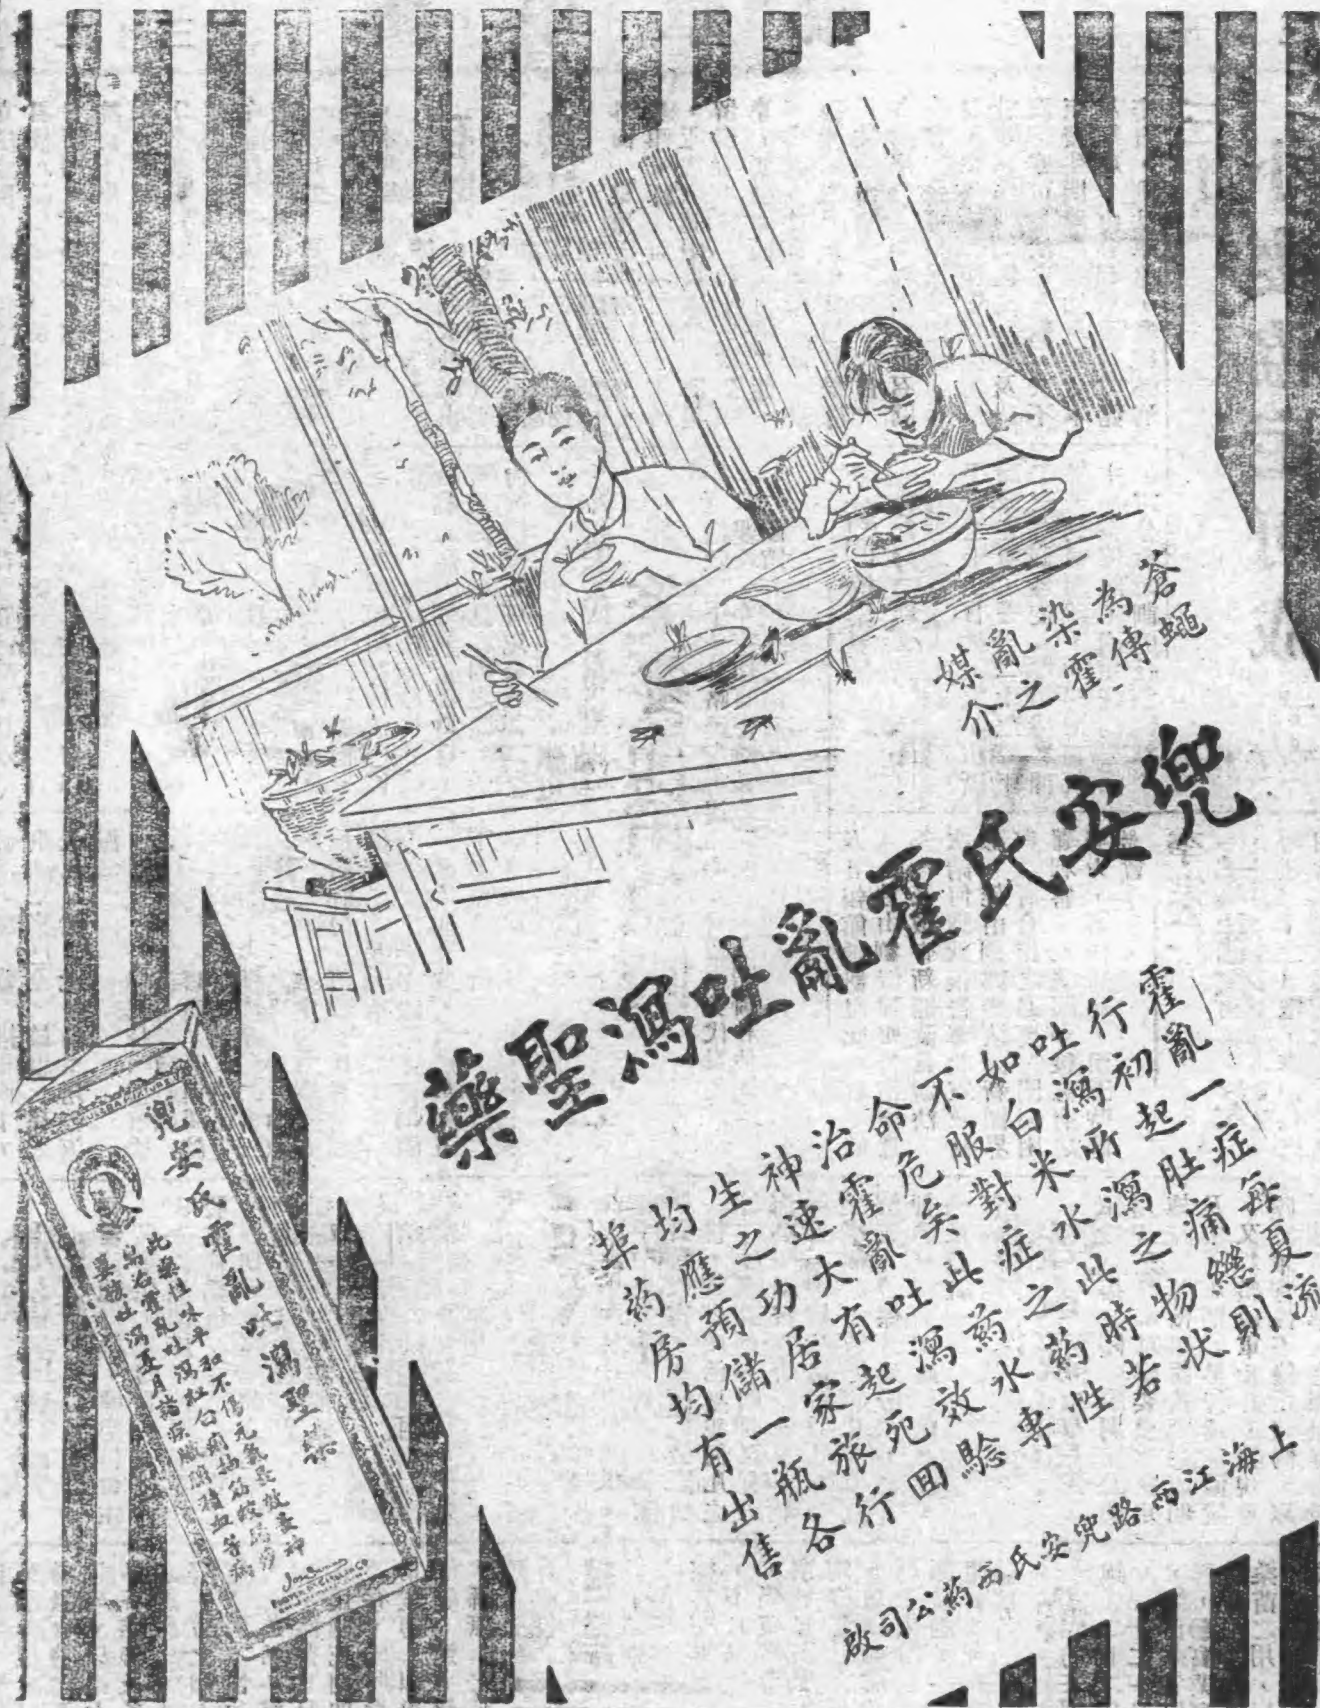 蒼蠅
為傳
染霍
亂之
媒介
兜安氏霍亂吐瀉聖藥
霍亂一症每夏流
行初起肚痛繼則
吐瀉所瀉之物狀
如白米水此時若
不服對症之葯性
命危矣此葯水專
治霍亂吐瀉效驗
神速大有起死回
生之功居家旅行
均應預儲一瓶各
埠葯房均有出售
上海江西路兜安氏西葯公司啟
兜安氏霍亂吐瀉聖藥
此藥性味平和不傷元氣
治霍亂吐瀉紅白痢抽筋
嬰孩吐瀉